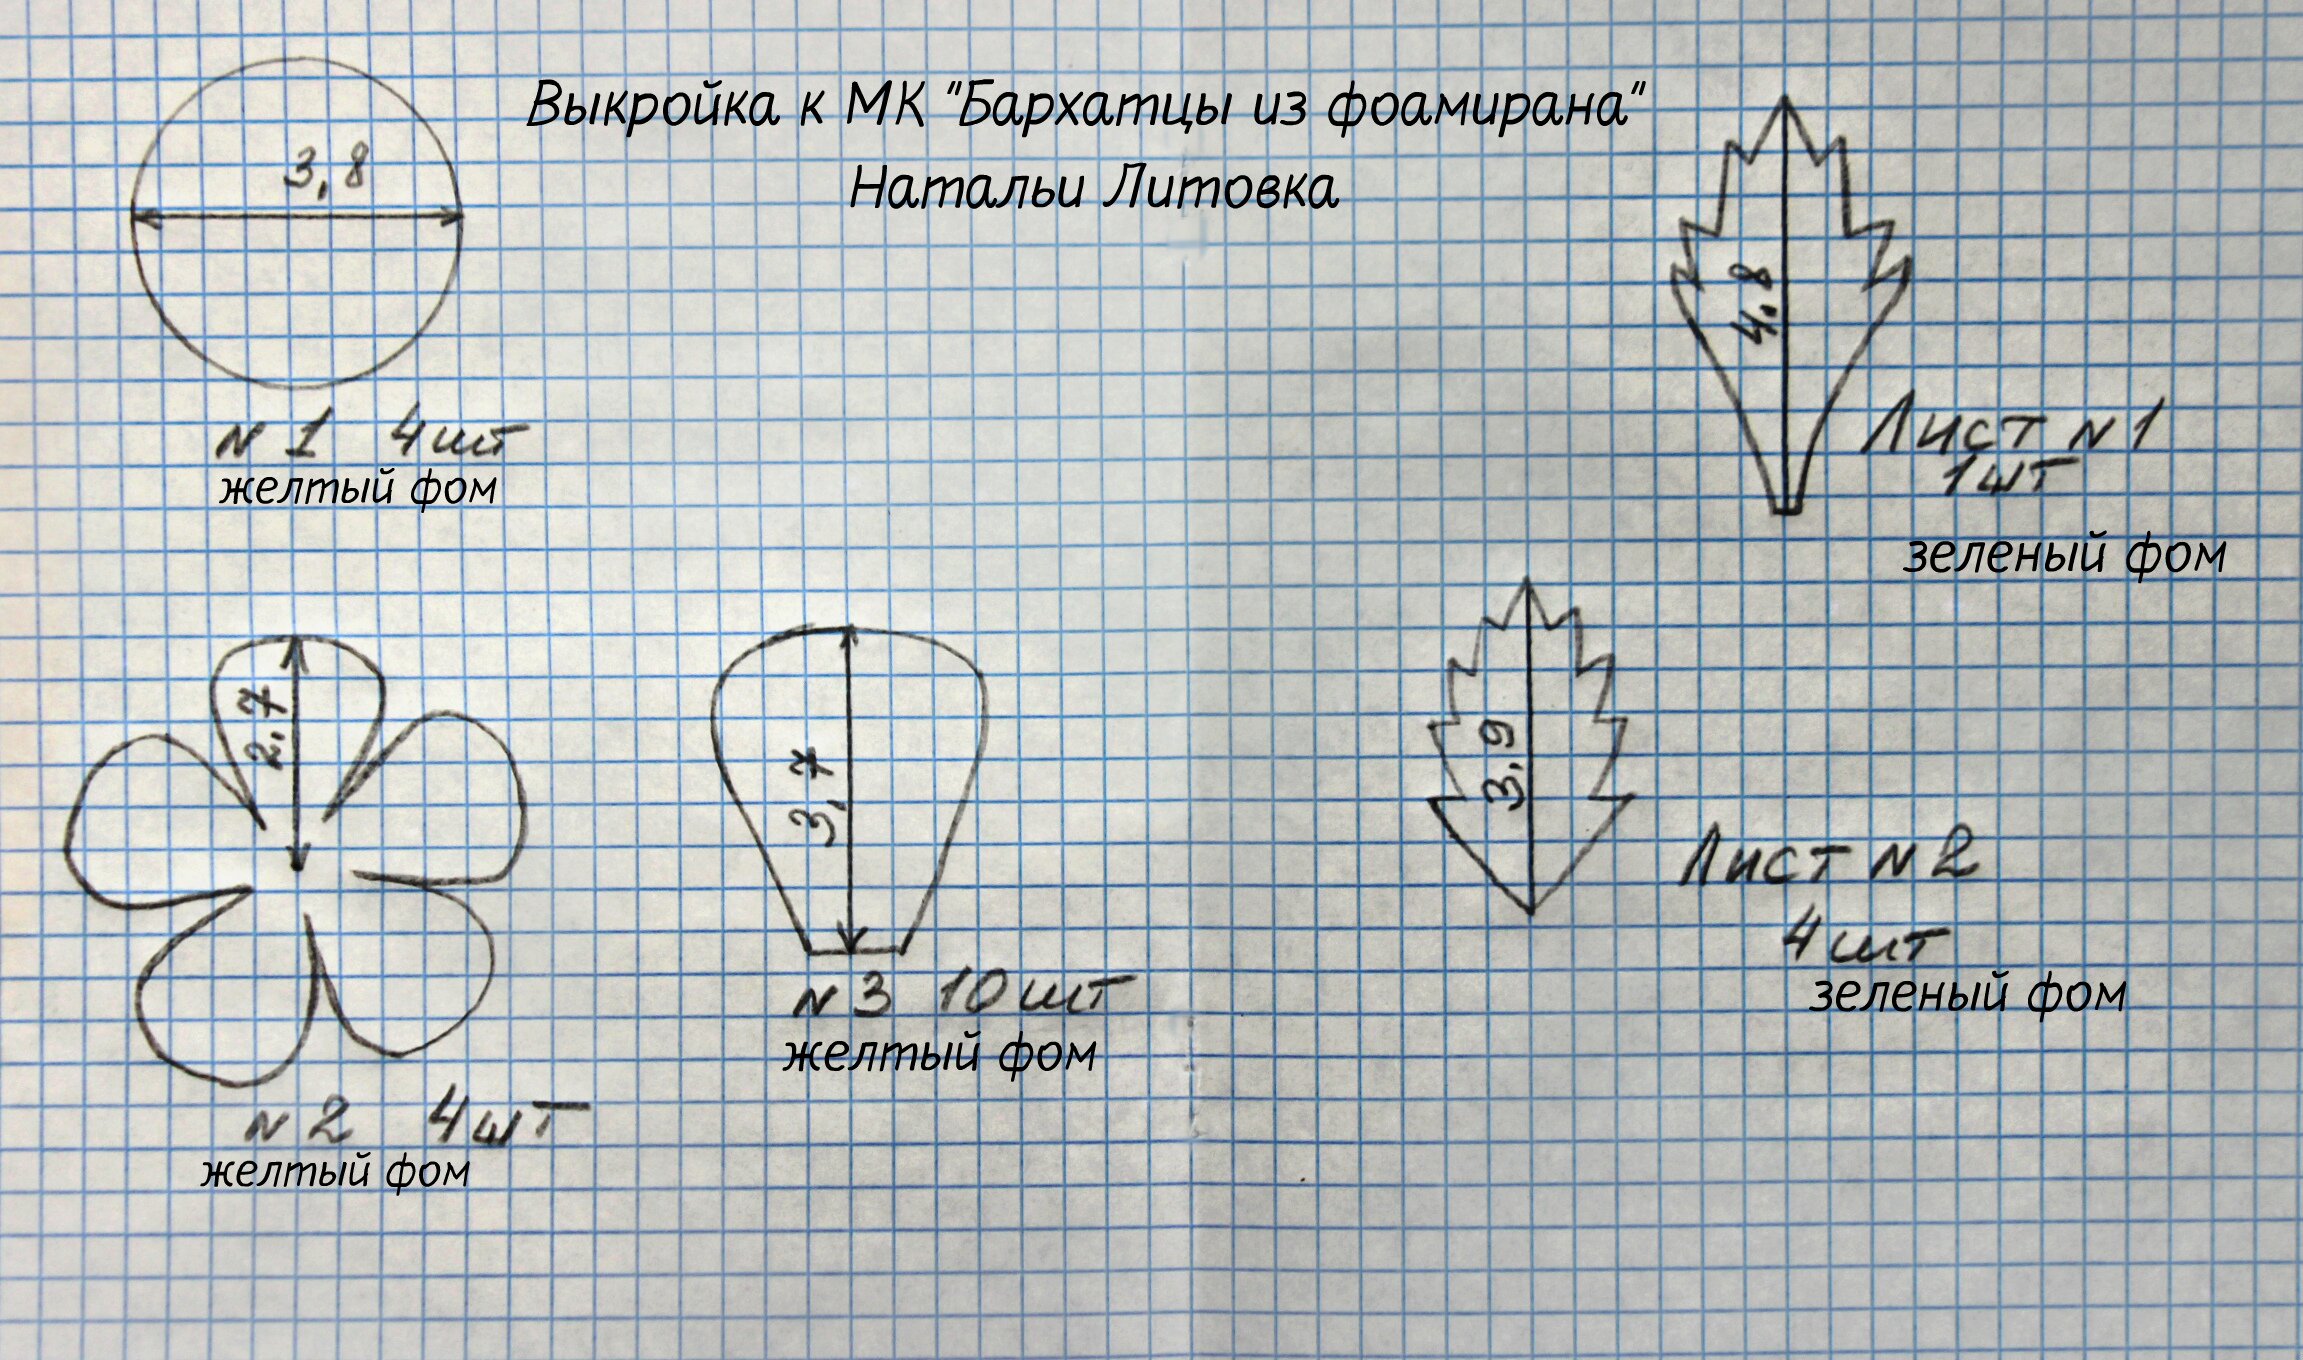 Выкройка к МК "Бархатцы из фоамирана"
Натальи Литовка
3,8
N 1 4шт
желтый фом
4,8
Лист N 1
1шт
зеленый фом
2,7
N 2 4шт
желтый фом
3,7
N 3 10шт
желтый фом
3,9
Лист N 2
4шт
зеленый фом